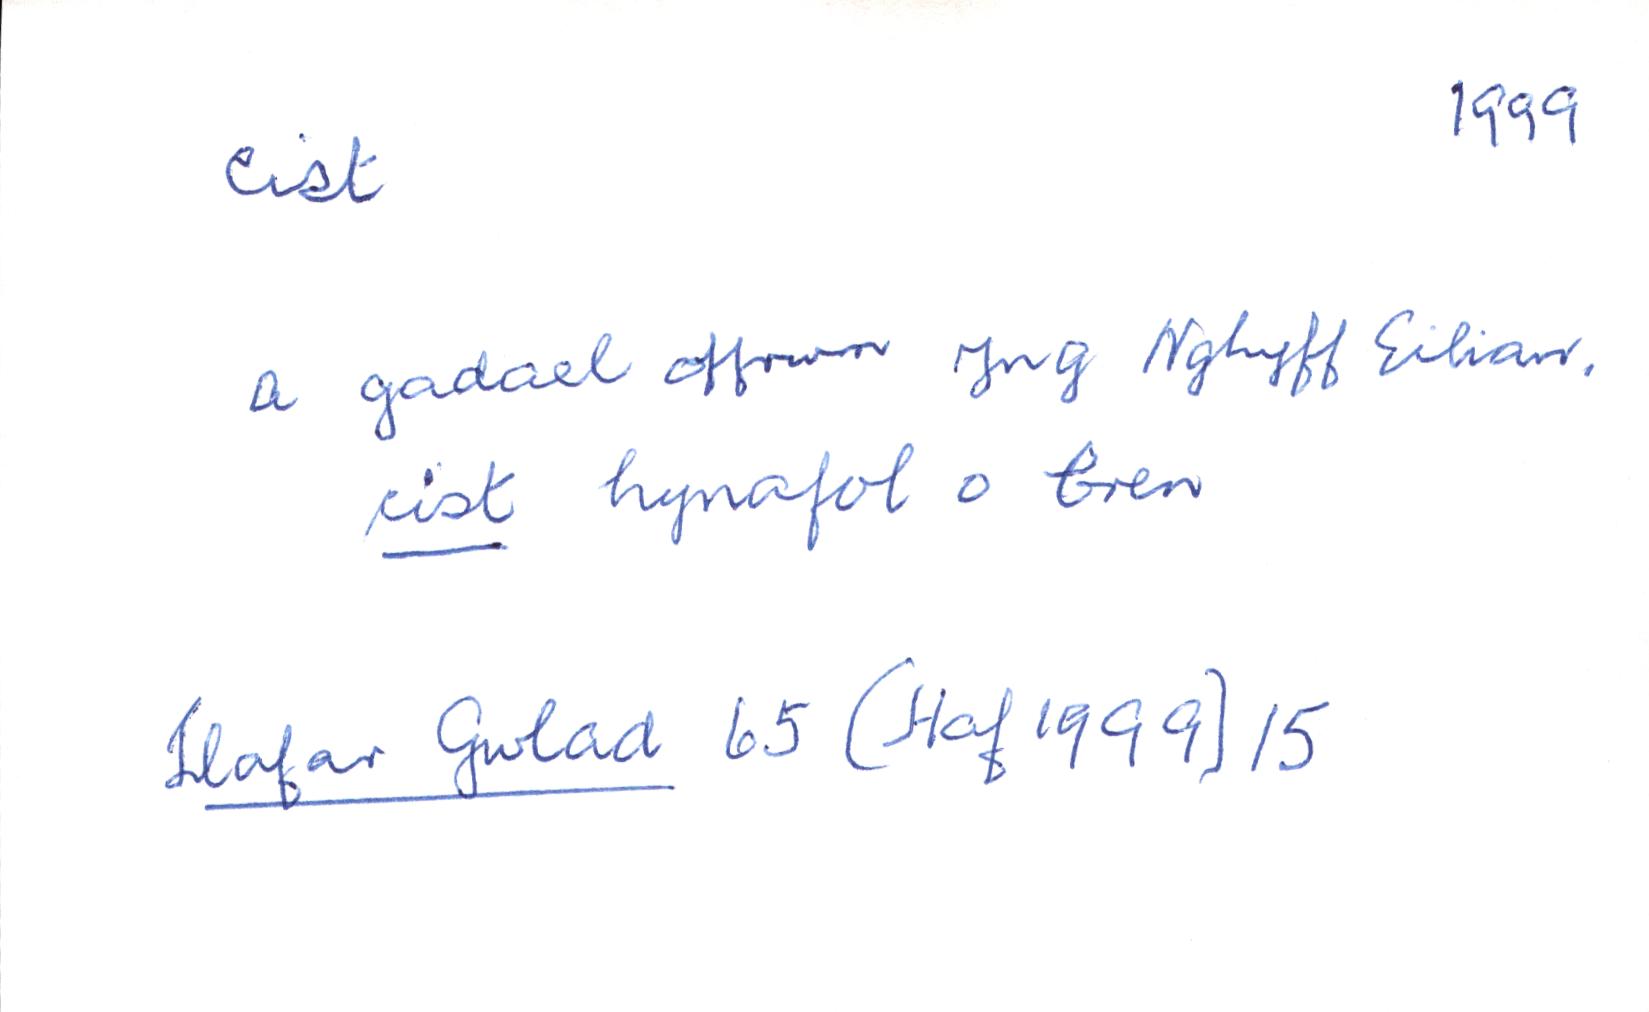 1999
cist
a gadael offrwm yng Nghyff Eilian,
cist hynafol o bren
Llafar Gwlad 65 (Haf 1999) 15